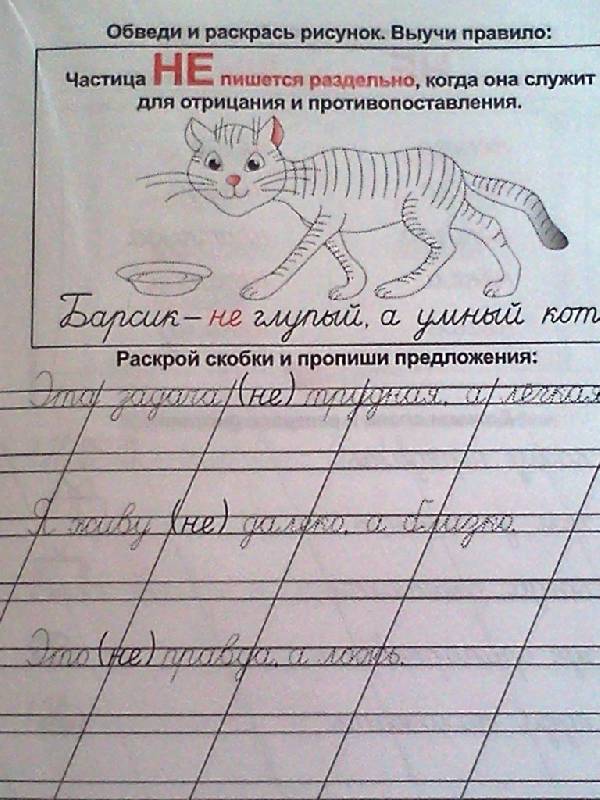 Обведи и раскрась рисунок. Выучи правило:
Частица НЕ пишется раздельно, когда она служит
для отрицания и противопоставления.
Барсик – не глупый, а умный кот.
Раскрой скобки и пропиши предложения:
Эта задача (не) трудная, а лёгкая
Я живу (не) далеко, а близко.
Это (не) правда, а ложь.